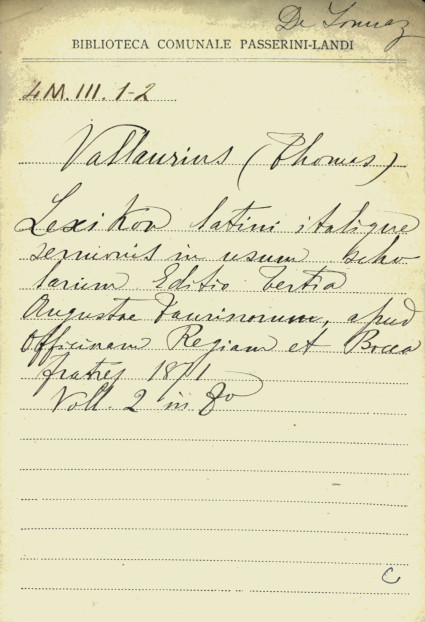 De
BIBLIOTECA COMUNALE PASSERINI-LANDI
4M.III.1-2
Vallaurius (Thomas)
Lexikon latini italique
sermonis in usum scho
larium Editio tertia
Augustae Taurinorum, apud
Officinam Regiam et Bocca
fratres 1871
Voll. 2 in 8o
C